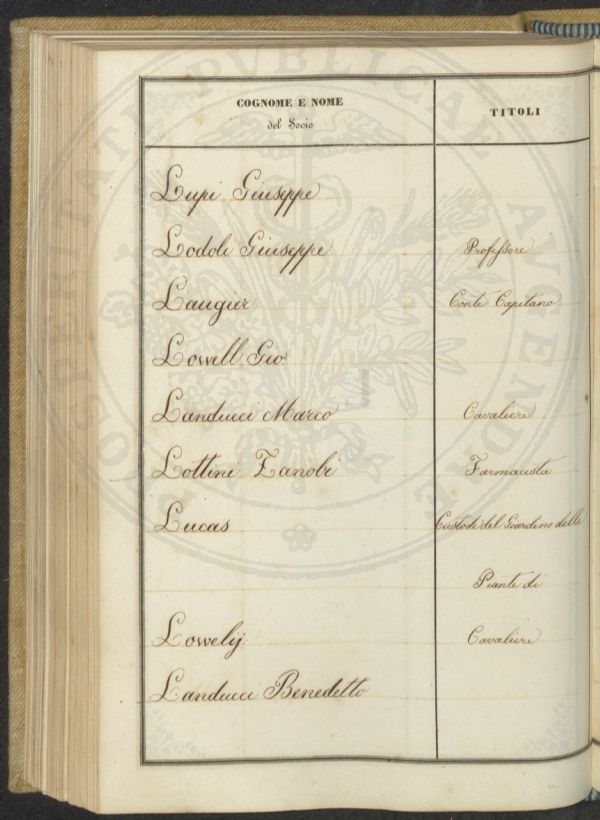 COGNOME E NOME
del Socio
TITOLI
Lupi Giuseppe
Lodoli Giuseppe Professore
Laugier Conte Capitano
Lowell Gio
Landucci Marco Cavaliere
Lottini Zanobi Farmacista
Lucas Custode del Giardino delle
Piante di
Lowelij Cavaliere
Landucci Benedetto
PROSPERITATI PVBLICAE AVGENDAE